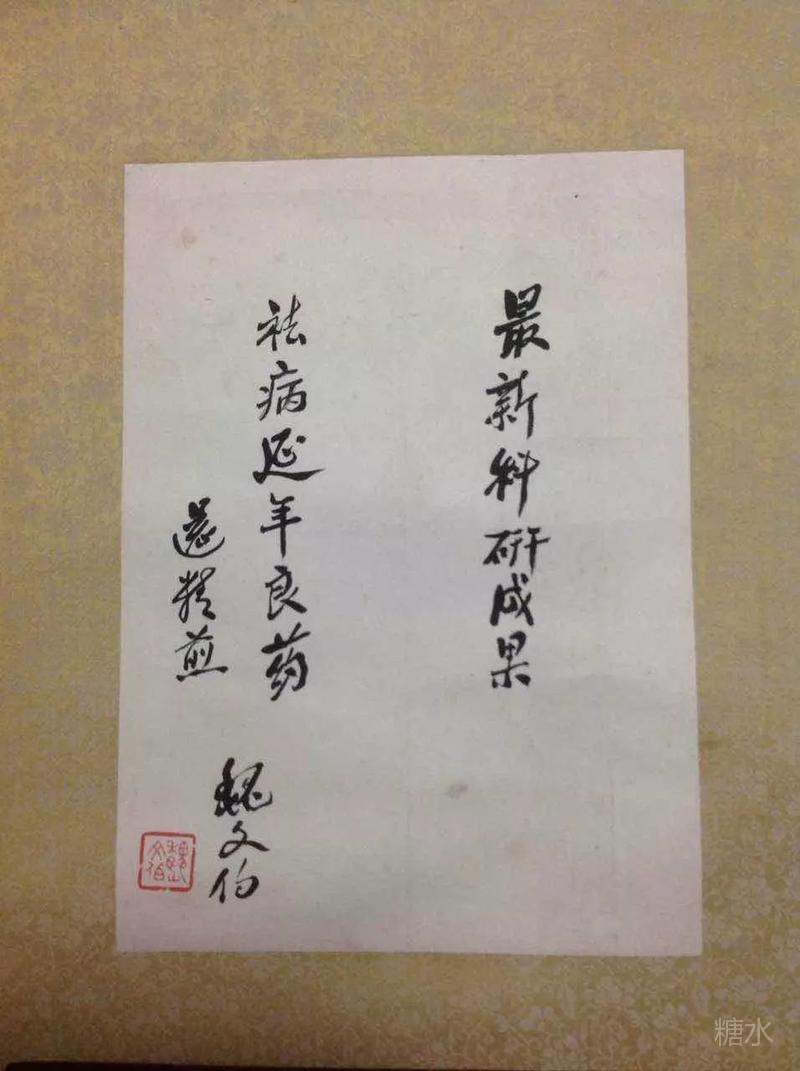 最新科研成果
祛病延年良药
還精煎
魏文伯
魏文伯
糖水